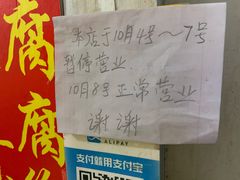 腐
腐
本店于10月4号～7号
暂停营业
10月8号正常营业
谢谢
ALIPAY
支付就用支付宝